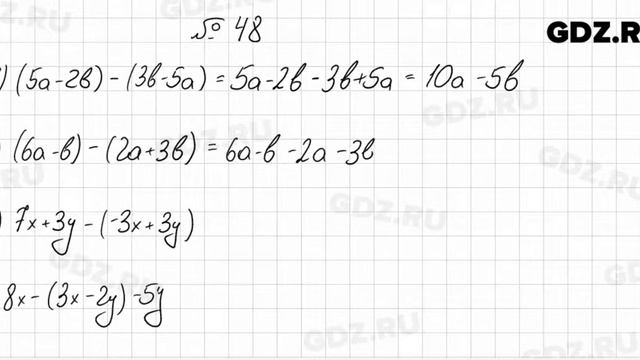 № 48
GDZ.R
) (5a-2в) - (3в-5a) = 5a-2в-3в+5a = 10a-5в
) (6a-в) - (2a+3в) = 6a-в-2a-3в
) 7x+3y-(-3x+3y)
8x-(3x-2y)-5y
GDZ.RU
GDZ.RU
GDZ.RU
GDZ.RU
GDZ.RU